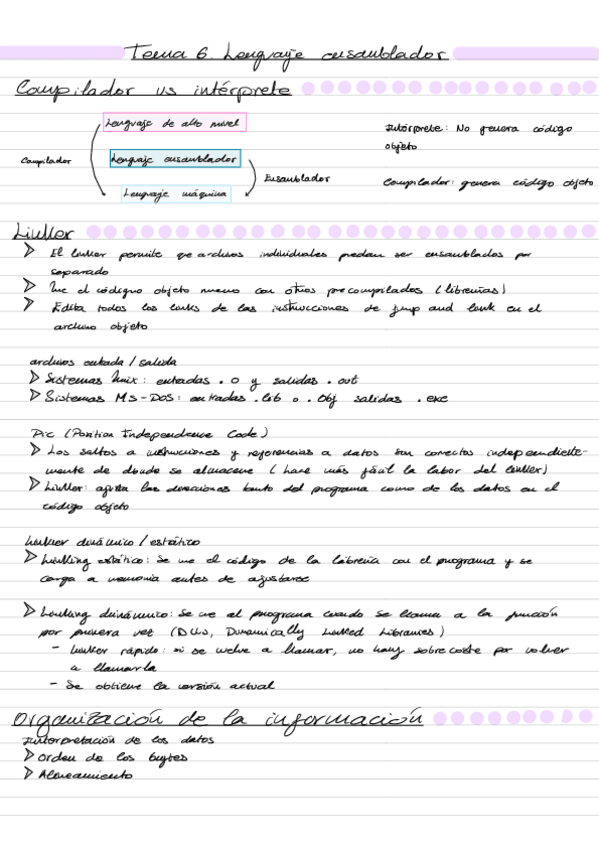 Tema 6. Lenguaje ensamblador
Compilador vs intérprete
Lenguaje de alto nivel
Intérprete: No genera código
objeto
Compilador
Lenguaje ensamblador
Ensamblador
Compilador: genera código objeto
Lenguaje máquina
Linker
> El linker permite que archivos individuales puedan ser ensamblados por
separado
> Une el código objeto nuevo con otros precompilados (librerías)
> Edita todos los links de las instrucciones de jump and link en el
archivo objeto
archivos entrada / salida
> Sistemas Unix: entradas .o y salidas .out
> Sistemas MS-DOS: entradas .lib o .obj salidas .exe
Pic (Position Independence Code)
> Los saltos a instrucciones y referencias a datos son correctos independiente-
mente de donde se almacene (hace más fácil la labor del linker)
> Linker: ajusta las direcciones tanto del programa como de los datos en el
código objeto
Linker dinámico / estático
> Linking estático: Se une el código de la librería con el programa y se
carga a memoria antes de ajustarse
> Linking dinámico: Se une al programa cuando se llama a la función
por primera vez (DLLs, Dynamically Linked Libraries)
- Linker rápido: si se vuelve a llamar, no hay sobrecoste por volver
a llamarla
- Se obtiene la versión actual
Organización de la información
Interpretación de los datos
> Orden de los bytes
> Alineamiento